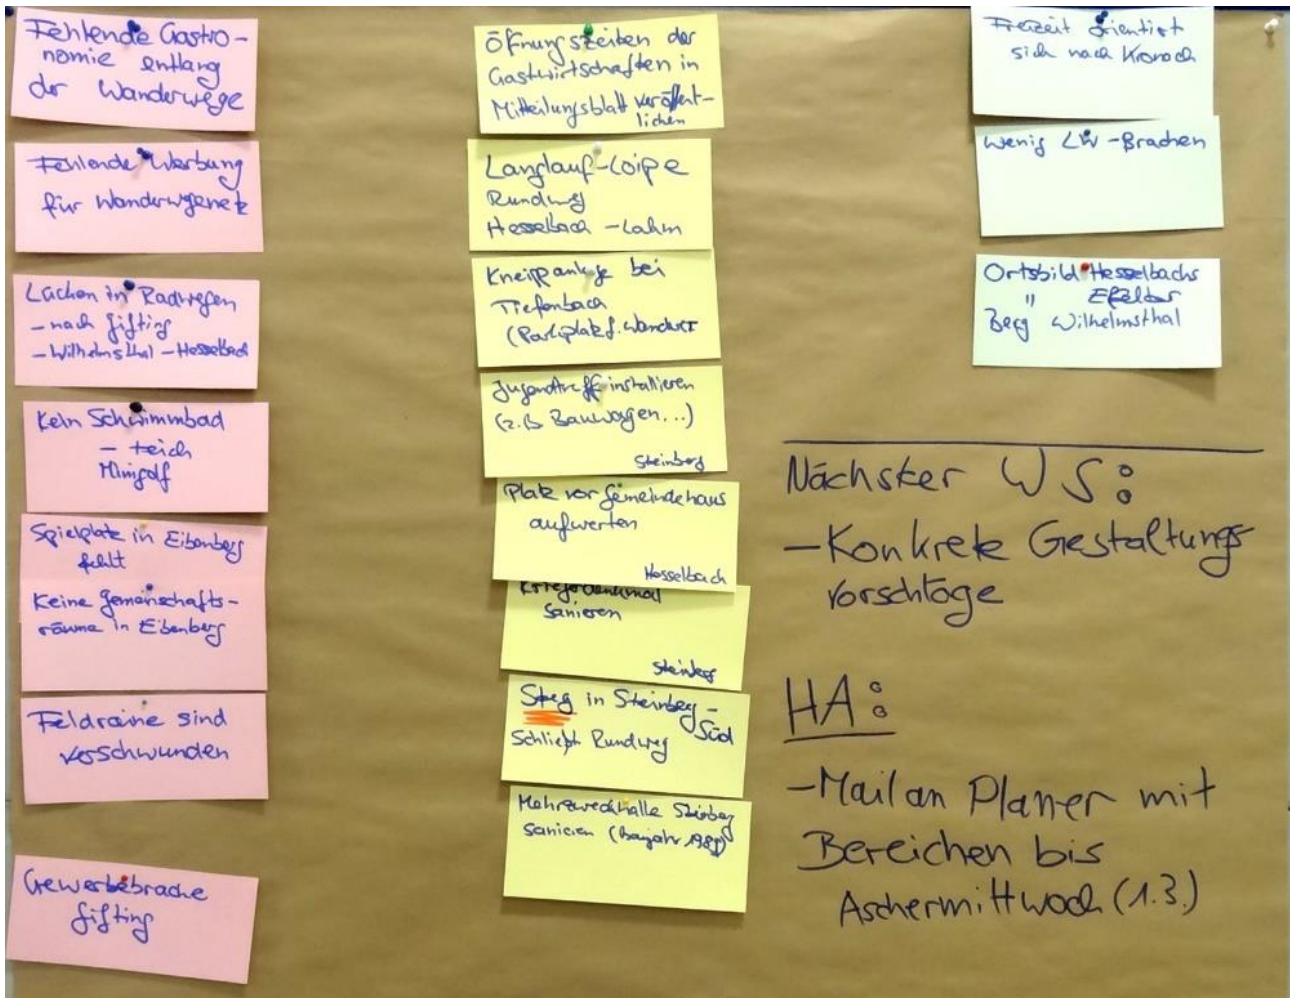 Fehlende Gastro-
nomie entlang
der Wanderwege
Fehlende Werbung
für Wanderwegenetz
Lücken in Radwegen
- nach Gifting
- Wilhelmsthal - Hesselbach
Kein Schwimmbad
- teich
Minigolf
Spielplatz in Eibenberg
fehlt
Keine Gemeinschafts-
räume in Eibenberg
Feldraine sind
verschwunden
Gewerbebrache
Gifting
Öffnungszeiten der
Gastwirtschaften in
Mitteilungsblatt veröffent-
lichen
Langlauf-Loipe
Rundweg
Hesselbach - Lahm
Kneippanlage bei
Tiefenbach
(Parkplatz f. Wanderer
Jugendtreff installieren
(z.B Bauwagen...)
Steinberg
Platz vor Gemeindehaus
aufwerten
Hesselbach
Kriegerdenkmal
sanieren
Steinberg
Steg in Steinberg-
Süd
Schließt Rundweg
Mehrzweckhalle Steinberg
sanieren (Baujahr
Freizeit orientiert
sich nach Kronach
Wenig LW-Brachen
Ortsbild Hesselbachs
" Effelter
Berg Wilhelmsthal
Nächster WS:
- Konkrete Gestaltungs
vorschläge
HA:
- Mail an Planer mit
Bereichen bis
Aschermittwoch (1.3.)